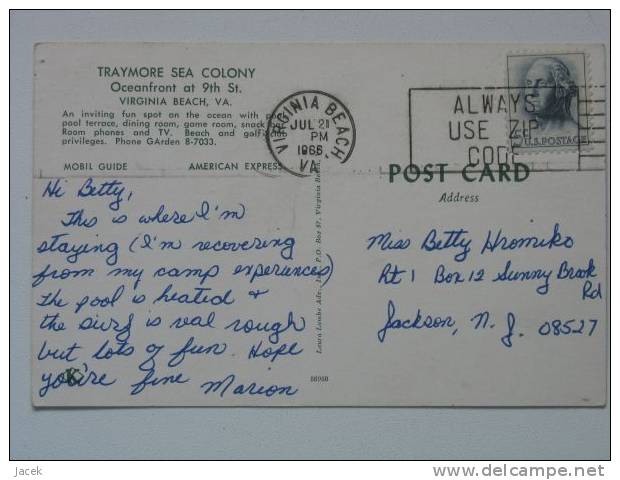 TRAYMORE SEA COLONY
Oceanfront at 9th St.
VIRGINIA BEACH, VA.
An inviting fun spot on the ocean with
pool terrace, dining room, game room, snack
Room phones and TV. Beach and golf
privileges. Phone GArden 8-7033.
MOBIL GUIDE AMERICAN EXPRESS
VIRGINIA BEACH
JUL 21
PM
1966
VA.
ALWAYS
USE ZIP
CODE
U.S. POSTAGE
POST CARD
Address
Hi Betty,
This is where I'm
staying (I'm recovering
from my camp experiences)
The pool is heated &
the surf is real rough
but lots of fun. Hope
you're fine Marion
K
Miss Betty Hromiko
Rt 1 Box 12 Sunny Brook
Rd
Jackson, N. J. 08527
P.O. Box 87, Virginia
Jacek
www.delcampe.net